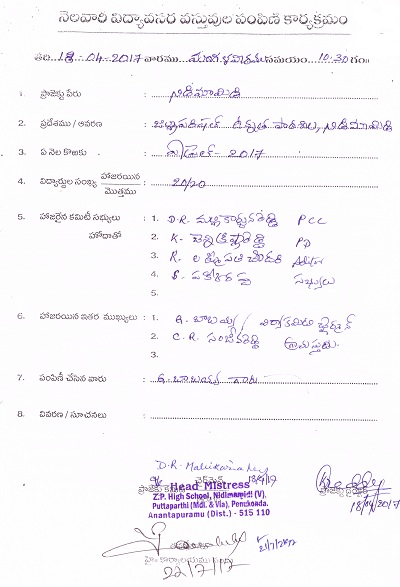 నెలవారి విద్యావసర వస్తువుల పంపిణి కార్యక్రమం
తేది 18-04-2017 వారము మంగళవారము సమయం 10-30 గం॥
1. ప్రాజెక్టు పేరు : నిడిమామిడి
2. ప్రదేశము / ఆవరణ : జిల్లాపరిషత్ ఉన్నత పాఠశాల, నిడిమామిడి
3. ఏ నెల కొఱకు : ఏప్రిల్ - 2017
4. విద్యార్థుల సంఖ్య హాజరయిన / మొత్తము : 20/20
5. హాజరైన కమిటీ సభ్యులు : 1. D.R. మల్లికార్జునరెడ్డి PCC
హోదాతో 2. K. రెడ్డి PD
3. R. లక్ష్మీపతి
4. S. సభ్యులు
5.
6. హాజరయిన ఇతర ముఖ్యులు : 1. G. బాబయ్య / విద్యాకమిటి ఛైర్మన్
2. C.R. సంజీవరెడ్డి గ్రామస్తుడు.
3.
7. పంపిణీ చేసిన వారు : G. బాబయ్య గారు
8. వివరణ / సూచనలు :
D.R. Mallikarjuna Reddy
18/4/17
Head Mistress
Z.P. High School, Nidimamidi (V),
Puttaparthi (Mdl. & Via), Penukonda.
Anantapuramu (Dist.) - 515 110
18/04/2017
22/7/17